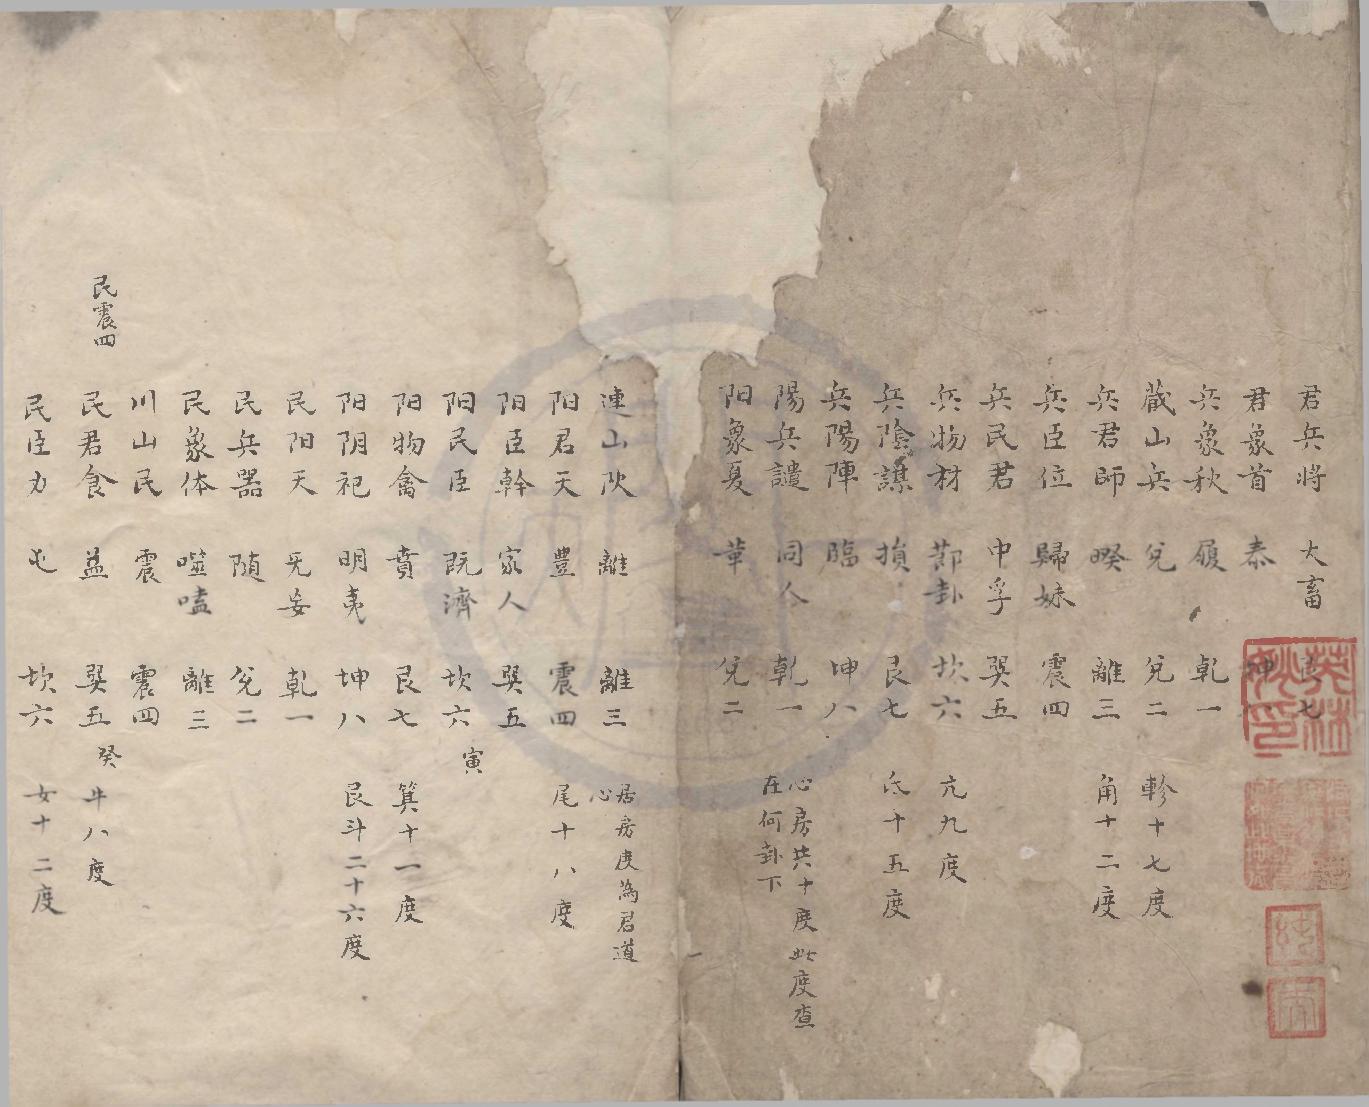 君兵將 大畜 艮七
君象首 泰 坤八
兵象秋 履 乾一
藏山兵 兌 兌二 軫十七度
兵君師 睽 離三 角十二度
兵臣位 歸妹 震四
兵民君 中孚 巽五
兵物材 節卦 坎六 亢九度
兵陰謀 損 艮七 氐十五度
兵陽陣 臨 坤八
陽兵譴 同人 乾一 心房共十度此度查
在何卦下
阳象夏 革 兌二
連山 離 離三 居房度為君道
心
阳君天 豐 震四 尾十八度
阳臣幹 家人 巽五
阳民臣 既濟 坎六 寅
阳物禽 賁 艮七 箕十一度
阳阴祀 明夷 坤八 艮斗二十六度
民阳天 旡妄 乾一
民兵器 随 兌二
民象体 噬嗑 離三
川山民 震 震四
民震四
民君食 益 巽五 癸牛八度
民臣力 屯 坎六 女十二度